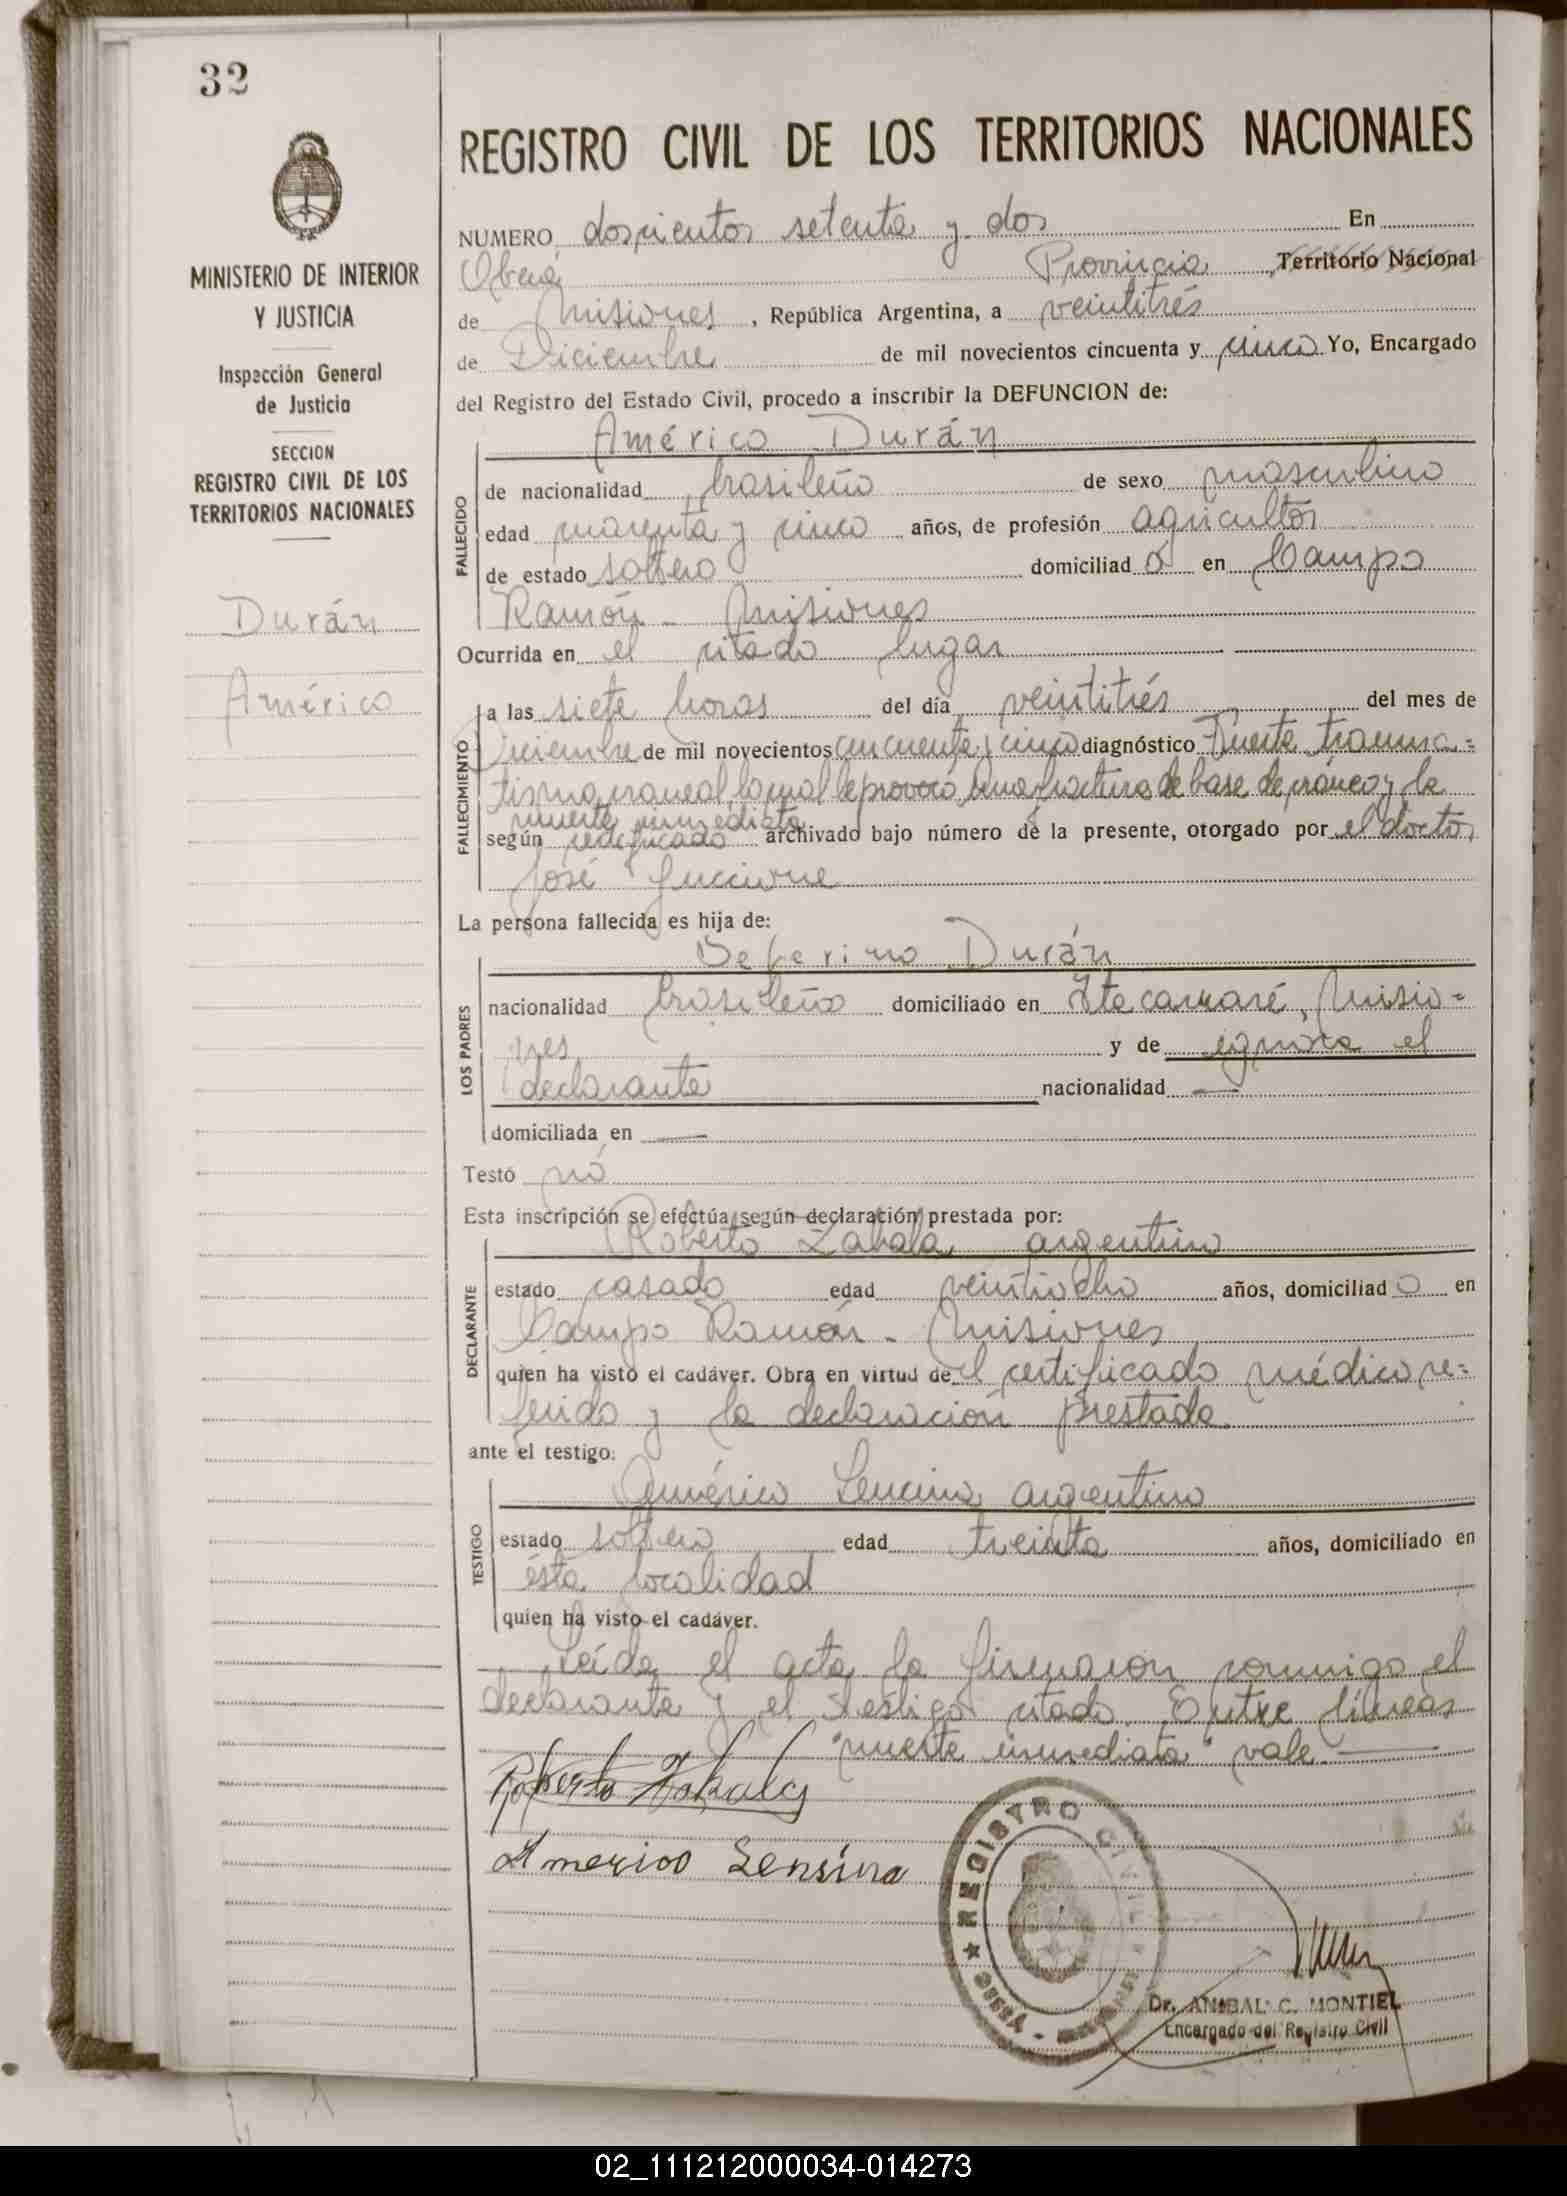 32
MINISTERIO DE INTERIOR
Y JUSTICIA
Inspección General
de Justicia
SECCION
REGISTRO CIVIL DE LOS
TERRITORIOS NACIONALES
Durán
Américo
REGISTRO CIVIL DE LOS TERRITORIOS NACIONALES
NUMERO doscientos setenta y dos En
Oberá Provincia Territorio Nacional
de Misiones, República Argentina, a veintitrés
de Diciembre de mil novecientos cincuenta y cinco Yo, Encargado
del Registro del Estado Civil, procedo a inscribir la DEFUNCION de:
Américo Durán
FALLECIDO
de nacionalidad brasileño de sexo masculino
edad cuarenta y cinco años, de profesión agricultor
de estado soltero domiciliado en Campo
Ramón - Misiones
Ocurrida en el citado lugar
FALLECIMIENTO
a las siete horas del día veintitrés del mes de
Diciembre de mil novecientos cincuenta y cinco diagnóstico Fuerte trauma=
tismo craneal, lo cual le provocó una fractura de base de cráneo y la
muerte inmediata
según certificado archivado bajo número de la presente, otorgado por el doctor
José Guccione
La persona fallecida es hija de:
LOS PADRES
Seferino Durán
nacionalidad brasileño domiciliado en Itacaruaré, Misio=
nes y de ignora el
declarante nacionalidad —
domiciliada en —
Testó nó
Esta inscripción se efectúa según declaración prestada por:
DECLARANTE
Roberto Zabala argentino
estado casado edad veintiocho años, domiciliado en
Campo Ramón - Misiones
quien ha visto el cadáver. Obra en virtud de el certificado médico re=
ferido y la declaración prestada
ante el testigo:
TESTIGO
Américo Sensina argentino
estado soltero edad treinta años, domiciliado en
ésta localidad
quien ha visto el cadáver.
Leída el acta la firmaron conmigo el
declarante y el testigo citado. Entre líneas
"muerte inmediata" vale.
Roberto Zabala
Americo Sensina
REGISTRO CIVIL
OBERÁ - MISIONES
Dr. ANIBAL C. MONTIEL
Encargado del Registro Civil
02_111212000034-014273